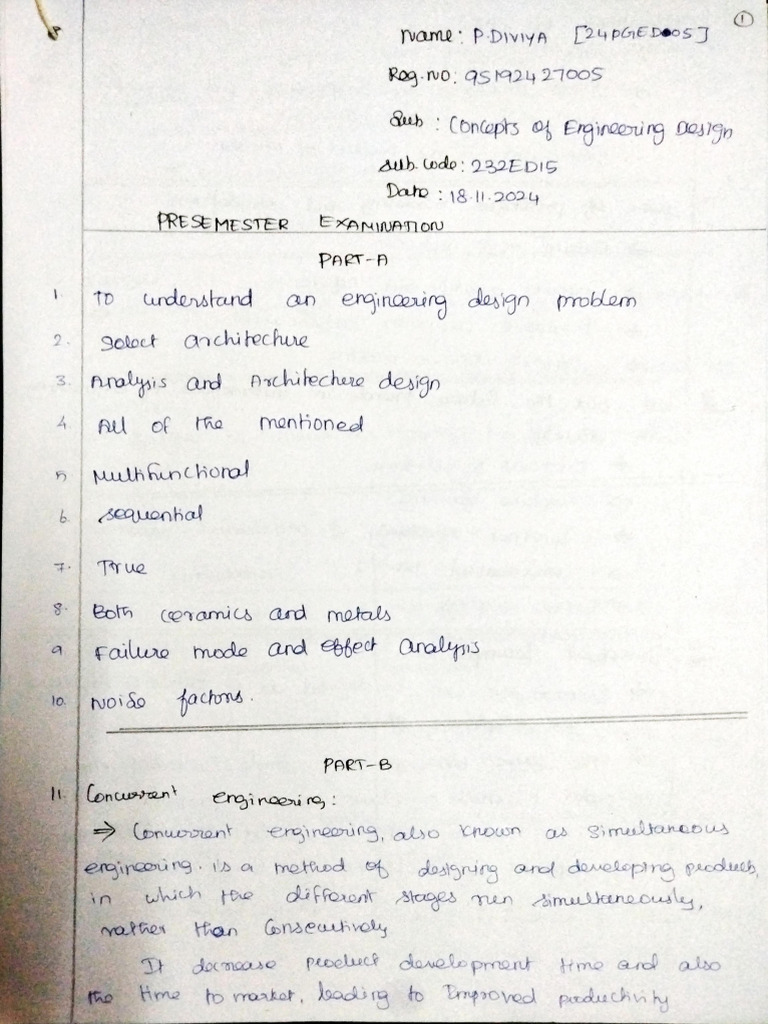 1
Name: P. DIVIYA [24PGED005]
Reg.no: 95192427005
Sub : Concepts of Engineering Design
Sub.code: 232ED15
Date : 18.11.2024
PRESEMESTER EXAMINATION
PART-A
1. To understand an engineering design problem
2. Select architechure
3. Analysis and Architechere design
4. All of the mentioned
5 Multifunctional
6. sequential
7. True
8. Both ceramics and metals
9 Failure mode and effect analysis
10. Noise factors.
PART-B
11. Concurrent engineering:
⇒ Concurrent engineering, also known as simultaneous
engineering. is a method of designing and developing products,
in which the different stages run simultaneously,
rather than consecutively
It decrease product development time and also
the time to market, leading to Improved productivity